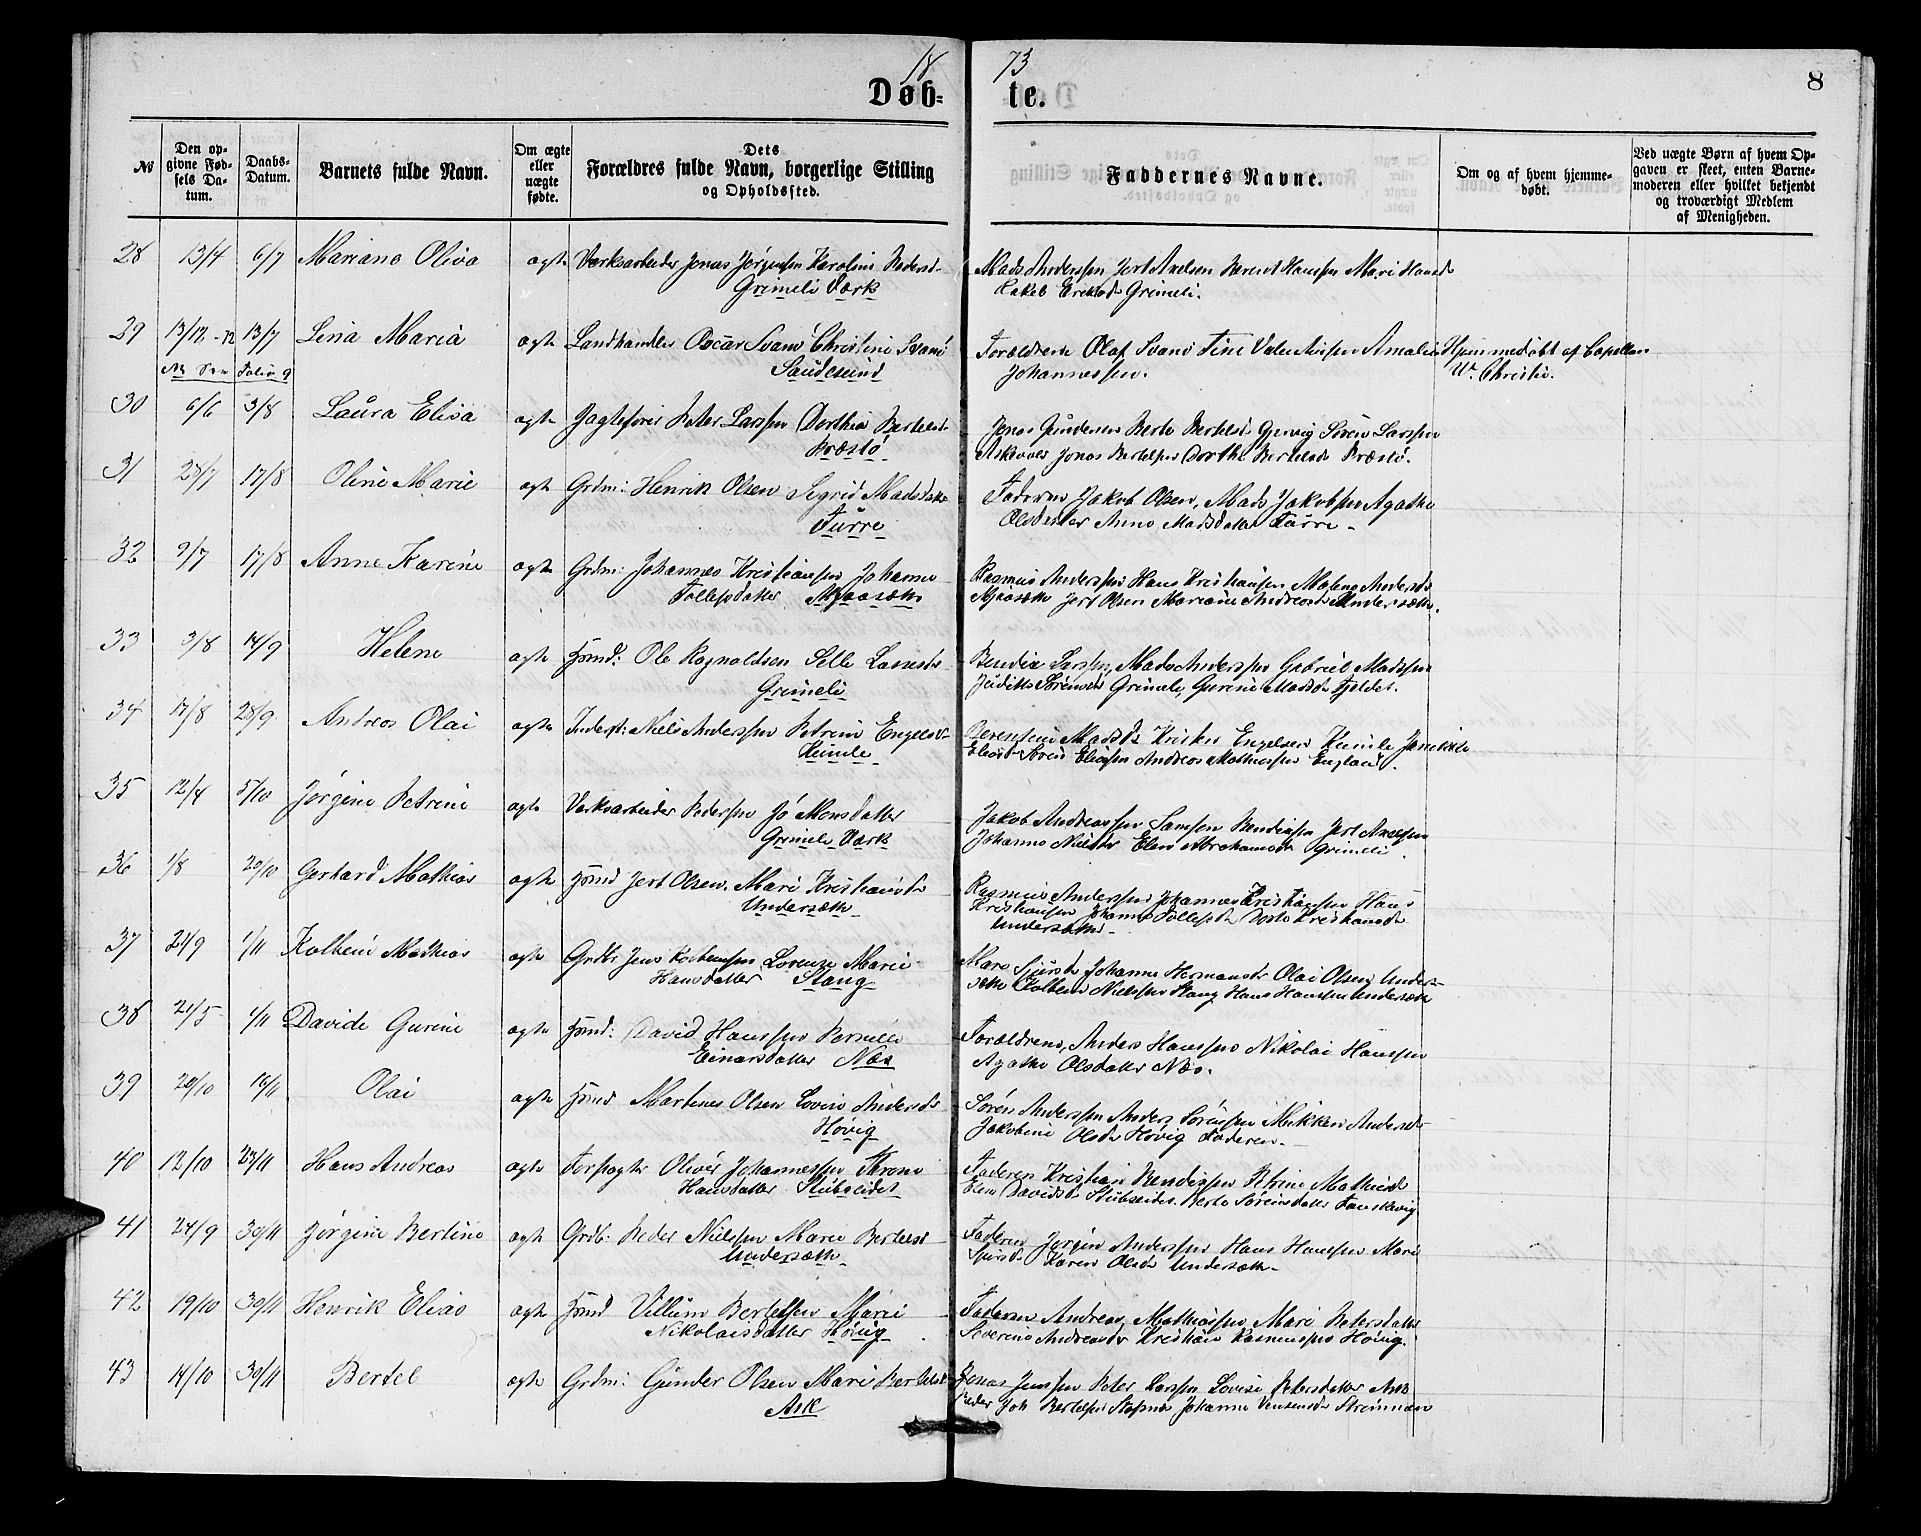 18 73
8
Døb= te.
№
Den op-
givne Fød-
sels Da-
tum.
Daabs-
Datum.
Barnets fulde Navn.
Om ægte
eller
uægte
fødte.
Dets
Forældres fulde Navn, borgerlige Stilling
og Opholdssted.
Faddernes Navne.
Om og af hvem hjemme-
døbt.
Ved uægte Børn af hvem Op-
gaven er skeet, enten Barne-
moderen eller hvilket bekjendt
og troværdigt Medlem
af Menigheden.
28 13/4 6/7 Mariane Oliva ægte Værksarbeider Jonas Jørgensen Karoline Pedersd.
Grimeli Værk
Mads Andersen Jert Axelsen Berent Hanssen Mari Hansd
Rakel Eriksd Grimeli.
29 13/12 -72 13/7 Lina Maria ægte Landhandler Oscar Svanø Christine Svanø
Sandesund
Folio 9
Forældrene Olaf Svanø Tine Valentinsen Amalia
Johannessen.
Hjemmedøbt af Capellan
W. Christie.
30 6/6 3/8 Laura Elisa ægte Jagtefører Peter Larssen Dorthea Bertelsd.
Præstø
Jonas Gundersen Berte Bertelsd Gjervig Søren Larssen
Askevold Jonas Bertelsen Dorthe Bertelsd Præstø.
31 23/7 17/8 Oline Marie ægte Grdm: Henrik Olsen Sigrid Madsdatter
Furre
Faderen Jakob Olsen, Mads Jakobsen Agathe
Olsdatter Anne Madsdatter Furre
32 9/7 17/8 Anne Karine ægte Grdm: Johannes Kristiansen Johanne
Tollefsdatter Mjaasæth
Rasmus Anderssen Hans Kristiansen Malene Andersd
Mjaasæth Jert Olsen Mariane Andreasd Undersæth.
33 3/8 14/9 Helene ægte Hmd: Ole Ragnaldsen Sille Lassesd.
Grimeli
Bendix Larssen Mads Anderssen Gabriel Madssen
Judith Sørensd Grimeli, Gurine Madsd Fjeldet.
34 17/8 28/9 Andreas Olai ægte Inderst: Niels Anderssen Petrine Engelsd.
Kumle
Madsd Kristen Engelsen Kumle
Eliasd Søren Eliassen Andreas Mathiassen England.
35 12/4 5/10 Jørgine Petrine ægte Værksarbeider Pedersen Jo Monsdatter
Grimeli Værk
Jakob Andreassen Samson Bendixsen Jert Axelsen
Johanne Nielsdr Elen Abrahamsdr Grimeli.
36 1/8 20/10 Gerhard Mathias ægte Hmd Jert Olsen Mari Kristiansdr
Undersæth
Rasmus Anderssen Johannes Kristiansen Hans
Kristiansen Johanne Tollefsd Berte Kristiansdr
Undersæth.
37 24/9 1/11 Kolbein Mathias ægte Grdbr Jens Kolbensen Lorense Marie
Hansdatter Stang
Mare Sjursd Johanne Hermansdr Olai Olsen Under-
sæth Kolben Nielssen Stang Hans Hanssen Undersæth
38 21/5 1/11 Davide Gurine ægte Hmd: David Hanssen Pernille
Einarsdatter Næs
Forældrene, Anders Hanssen Nikolai Hanssen
Agathe Olsdatter Næs.
39 20/10 16/11 Olai ægte Hmd Martines Olsen Lovise Andersdr
Høvig
Søren Anderssen Anders Sørensen Mikken Andersd
Jakobine Olsdr Høvig Faderen.
40 12/10 23/11 Hans Andreas ægte Forpagter Oliver Johannessen Therese
Hansdatter Stubseidet
Faderen Kristian Bendixsen Petrine Mathiasd
Elen Davidsdr Stubseidet Berte Sørensdatter Fauskevig
41 24/9 30/11 Jørgine Bertine ægte Grdb. Peder Nielssen Marie Bertelsd
Undersæth
Faderen Jørgen Anderssen Hans Hanssen Mari
Sjursd. Karen Olsdr Undersæth
42 19/10 30/11 Henrik Elias ægte Hmd Villum Bertelsen Marie
Nikolaisdatter Høvig
Faderen Andreas Mathiassen Mari Petersdatter
Severine Andreasdr Kristian Rasmussen Høvig.
43 14/10 30/11 Bertel ægte Grdm: Gunder Olsen Mari Bertelsd
Ask
Jonas Jenssen Peter Larssen Lovise Petersdatter Ask
Peder Joh Bertelsen Stafsnes Johanne Strømnæs